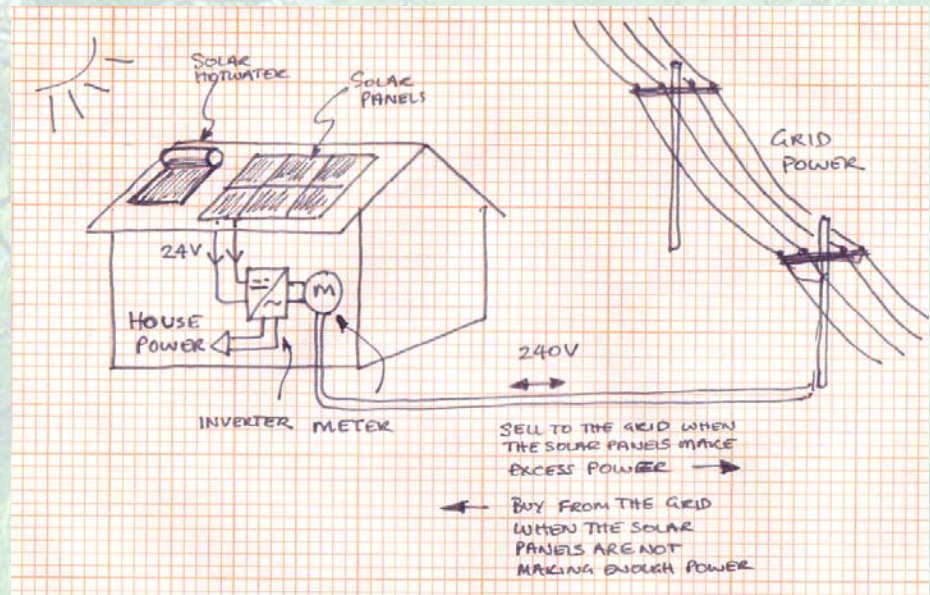 SOLAR
HOTWATER
SOLAR
PANELS
GRID
POWER
24V
M
HOUSE
POWER
240V
INVERTER
METER
SELL TO THE GRID WHEN
THE SOLAR PANELS MAKE
EXCESS POWER
BUY FROM THE GRID
WHEN THE SOLAR
PANELS ARE NOT
MAKING ENOUGH POWER